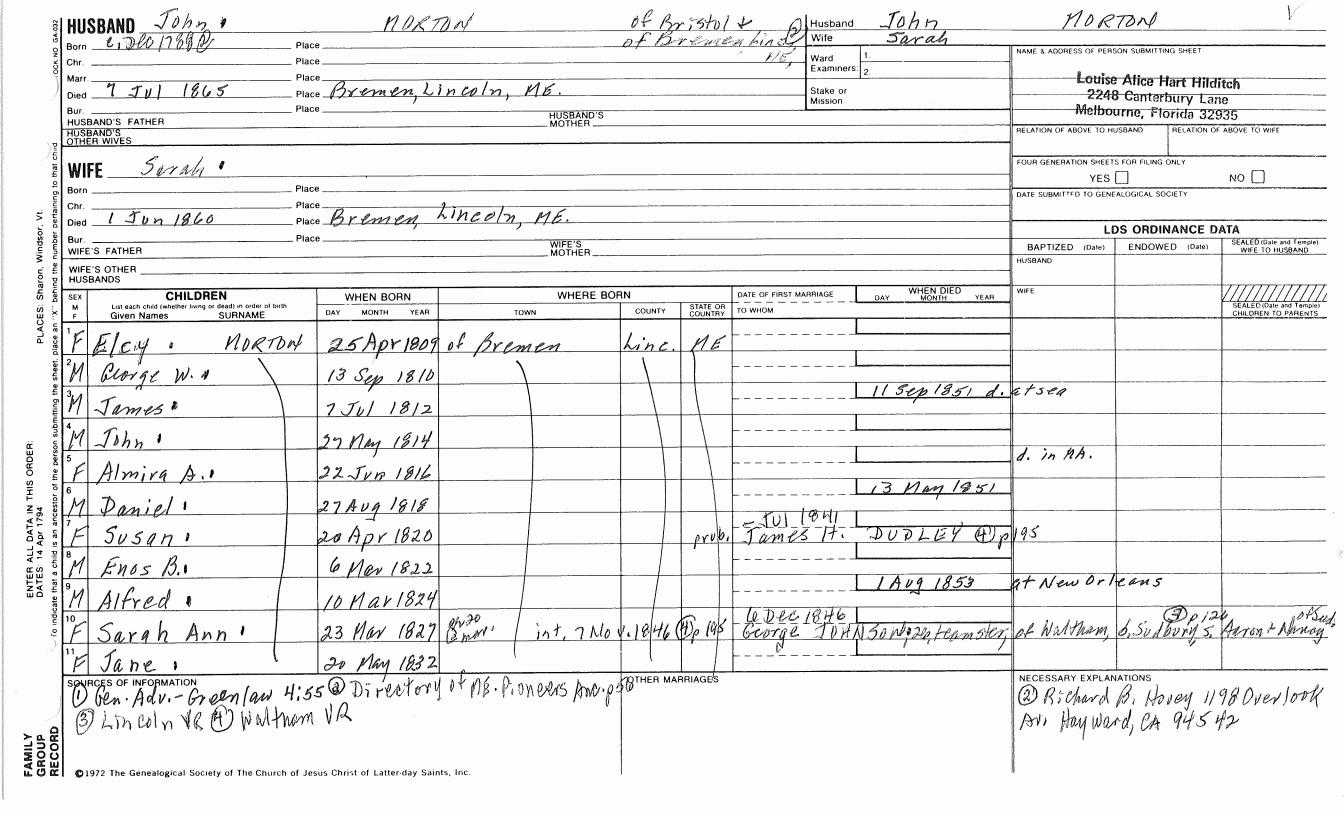 HUSBAND John MORTON of Bristol +
of Bremen Linc ME.
Born c. Dec 1788 ② Place
Chr. Place
Marr Place
Died 7 Jul 1865 Place Bremen, Lincoln, ME.
Bur. Place
HUSBAND'S FATHER HUSBAND'S MOTHER
HUSBAND'S OTHER WIVES
Husband John MORTON
Wife Sarah
Ward 1.
Examiners: 2.
Stake or Mission
NAME & ADDRESS OF PERSON SUBMITTING SHEET
Louise Alice Hart Hilditch
2248 Canterbury Lane
Melbourne, Florida 32935
RELATION OF ABOVE TO HUSBAND RELATION OF ABOVE TO WIFE
FOUR GENERATION SHEETS FOR FILING ONLY
YES NO
DATE SUBMITTED TO GENEALOGICAL SOCIETY
WIFE Sarah
Born Place
Chr. Place
Died 1 Jun 1860 Place Bremen, Lincoln, ME.
Bur. Place
WIFE'S FATHER WIFE'S MOTHER
WIFE'S OTHER HUSBANDS
LDS ORDINANCE DATA
BAPTIZED (Date) ENDOWED (Date) SEALED (Date and Temple) WIFE TO HUSBAND
HUSBAND
WIFE
SEALED (Date and Temple) CHILDREN TO PARENTS
SEX M F
CHILDREN
List each child (whether living or dead) in order of birth
Given Names SURNAME
WHEN BORN
DAY MONTH YEAR
WHERE BORN
TOWN COUNTY STATE OR COUNTRY
DATE OF FIRST MARRIAGE
TO WHOM
WHEN DIED
DAY MONTH YEAR
1 F Elcy MORTON 25 Apr 1809 of Bremen Linc. ME
2 M George W. 13 Sep 1810
3 M James 7 Jul 1812 11 Sep 1851 d. at sea
4 M John 27 May 1814
5 F Almira A. 22 Jun 1816 d. in AA.
6 M Daniel 27 Aug 1818 13 May 1851
7 F Susan 20 Apr 1820 prob. – Jul 1841 James H. DUDLEY ④ p195
8 M Enos B. 6 Mar 1822
9 M Alfred 10 Mar 1824 1 Aug 1853 at New Orleans
10 F Sarah Ann 23 Mar 1827 int. 7 Nov. 1846 ④ p 195 6 Dec 1846 George JOHNSON, teamster, of Waltham, b. Sudbury, s. Aaron + Nancy of Sud. ③ p126
11 F Jane 20 May 1832
SOURCES OF INFORMATION
① Gen. Adv. - Greenlaw 4:55 ② Directory of ME. Pioneers Anc. p50
③ Lincoln VR ④ Waltham VR
OTHER MARRIAGES
NECESSARY EXPLANATIONS
② Richard B. Hovey 1198 Overlook
Av. Hayward, CA 94542
©1972 The Genealogical Society of The Church of Jesus Christ of Latter-day Saints, Inc.
FAMILY GROUP RECORD
ENTER ALL DATA IN THIS ORDER:
DATES 14 Apr 1794
PLACES: Sharon, Windsor, Vt.
To indicate that a child is an ancestor of the person submitting the sheet, place an "X" behind the number pertaining to that child